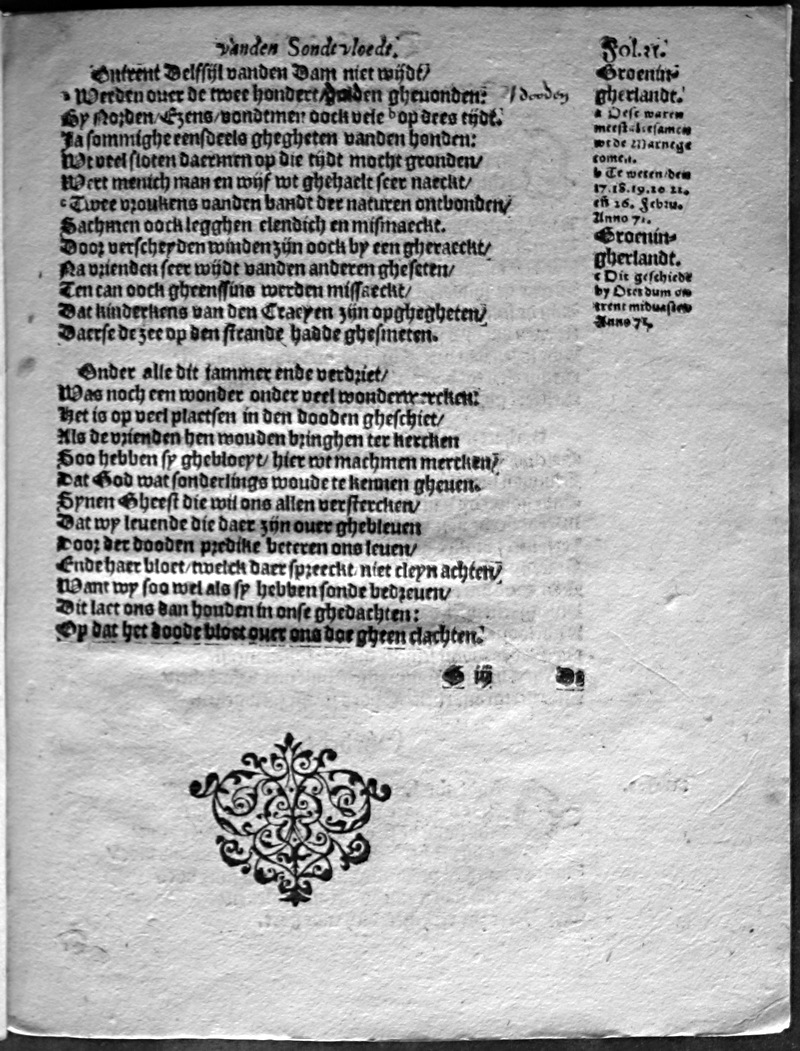 vanden Sondtvloedt.
Ontrent Delffijl vanden Dam niet wijdt/
a Werden ouer de twee hondert/ den gheuonden: / dooden
By Norden/Ezens/vondtmen oock vele b op dees tijdt.
Ja sommighe eensdeels ghegheten vanden honden:
Wt veel sloten daermen op die tijdt mocht gronden/
Wert menich man en wijf wt ghehaelt seer naeckt/
c Twee vroukens vanden bandt der naturen ontbonden/
Sachmen oock legghen elendich en mismaeckt.
Door verscheyden winden zijn oock by een gheraeckt/
Na vrienden seer wijdt vanden anderen gheseten/
Ten can oock gheenssins werden missaeckt/
Dat kinderkens van den Craeyen zijn opghegheten/
Daerse de zee op den strande hadde ghesmeten.
Onder alle dit iammer ende verdriet/
Was noch een wonder onder veel wonderwercken:
Het is op veel plaetsen in den dooden gheschiet/
Als de vrienden hen wouden bringhen ter kercken
Soo hebben sy ghebloeyt/ hier wt machmen mercken/
Dat God wat sonderlings woude te kennen gheuen.
Synen Gheest die wil ons allen verstercken/
Dat wy leuende die daer zijn ouer ghebleuen
Door der dooden predike beteren ons leuen/
Ende haer bloet/twelck daer spreeckt niet cleyn achten/
Want wy soo wel als sy hebben sonde bedreuen/
Dit laet ons dan houden in onse ghedachten:
Op dat het doode bloet ouer ons doe gheen clachten.
G iij De
Fol. 27.
Groenin-
gherlandt.
a Dese waren
meest al tesamen
wt de Marnege
comen.
b Te weten/den
17.18.19.20 21.
eñ 26. Febru.
Anno 71.
Groenin-
gherlandt.
c Dit geschiede
by Oterdum on
trent miduasten
Anno 71.